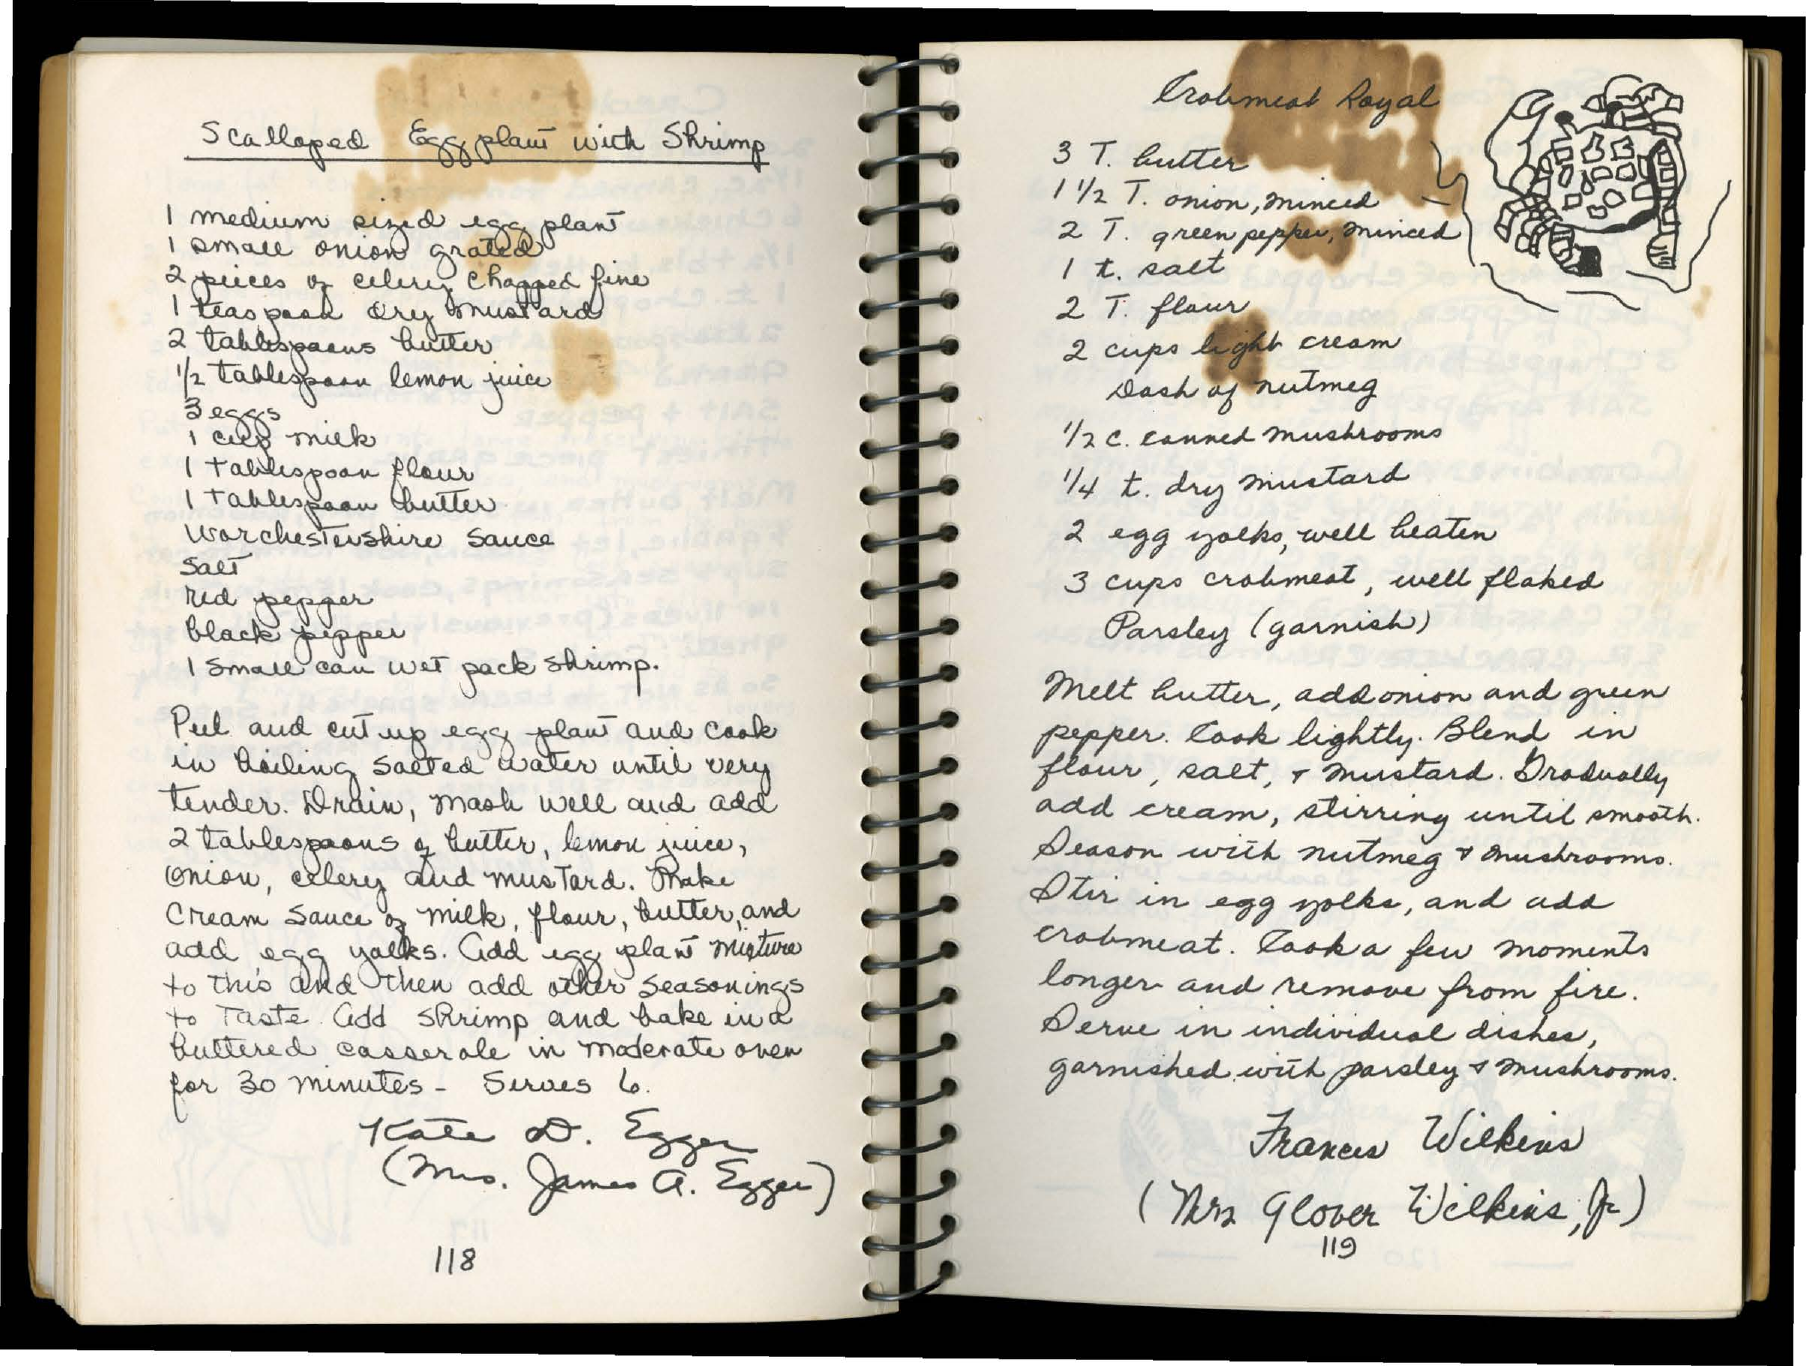 Scalloped Egg plant with Shrimp
1 medium sized egg plant
1 small onion grated
2 pieces of celery chopped fine
1 teaspoon dry mustard
2 tablespoons butter
1/2 tablespoon lemon juice
3 eggs
1 cup milk
1 tablespoon flour
1 tablespoon butter
Worchestershire Sauce
Salt
red pepper
black pepper
1 small can wet pack shrimp.
Peel and cut up egg plant and cook
in boiling salted water until very
tender. Drain, mash well and add
2 tablespoons of butter, lemon juice,
onion, celery and mustard. Make
cream sauce of milk, flour, butter, and
add egg yolks. Add egg plant mixture
to this and then add other seasonings
to taste. Add shrimp and bake in a
buttered casserole in moderate oven
for 30 minutes - Serves 6.
Kate D. Egger
(Mrs. James A. Egger)
118
Crabmeat Royal
3 T. butter
1 1/2 T. onion, minced
2 T. green pepper, minced
1 t. salt
2 T. flour
2 cups light cream
Dash of nutmeg
1/2 c. canned mushrooms
1/4 t. dry mustard
2 egg yolks, well beaten
3 cups crabmeat, well flaked
Parsley (garnish)
Melt butter, add onion and green
pepper. Cook lightly. Blend in
flour, salt, + mustard. Gradually
add cream, stirring until smooth.
Season with nutmeg + mushrooms.
Stir in egg yolks, and add
crabmeat. Cook a few moments
longer and remove from fire.
Serve in individual dishes,
garnished with parsley + mushrooms.
Frances Wilkins
(Mrs Glover Wilkins, Jr)
119